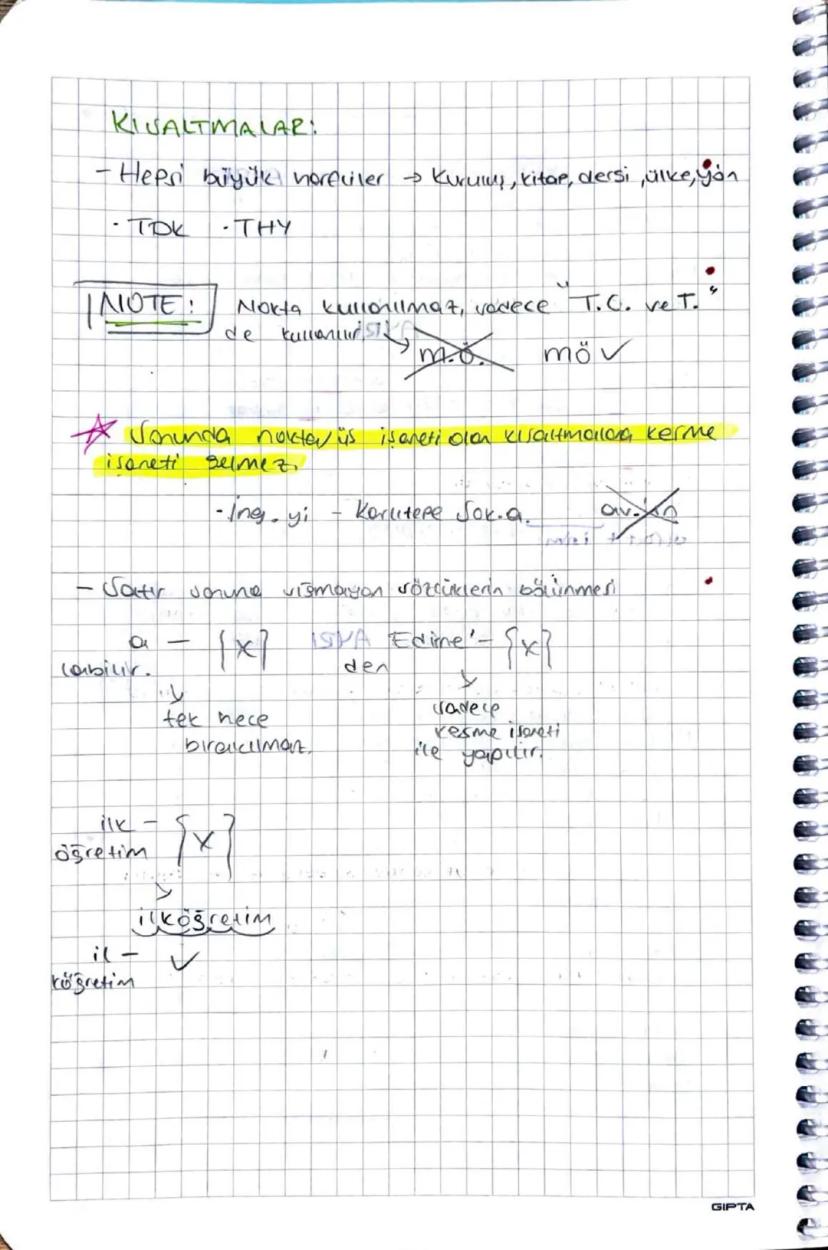 KISALTMALAR:
- Hepsi büyük harfliler → Kuruluş, kitap, dergi, ülke, yön
· TDK · THY
NOTE: Nokta kullanılmaz, sadece "T.C. ve T."
de kullanılır. → m.ö. mö ✓
☆ Sonunda nokta/üs işareti olan kısaltmalara kesme
işareti gelmez.
- İng. yi - Korutepe Sok.a.
- Satır sonuna sığmayan sözcüklerin bölünmesi
a - {x} Edirne'- {x}
labilir. den
tek hece sadece
bırakılmaz. kesme işareti
ile yapılır.
ilk - {x}
öğretim
ilköğretim
il - ✓
köğretim
GIPTA